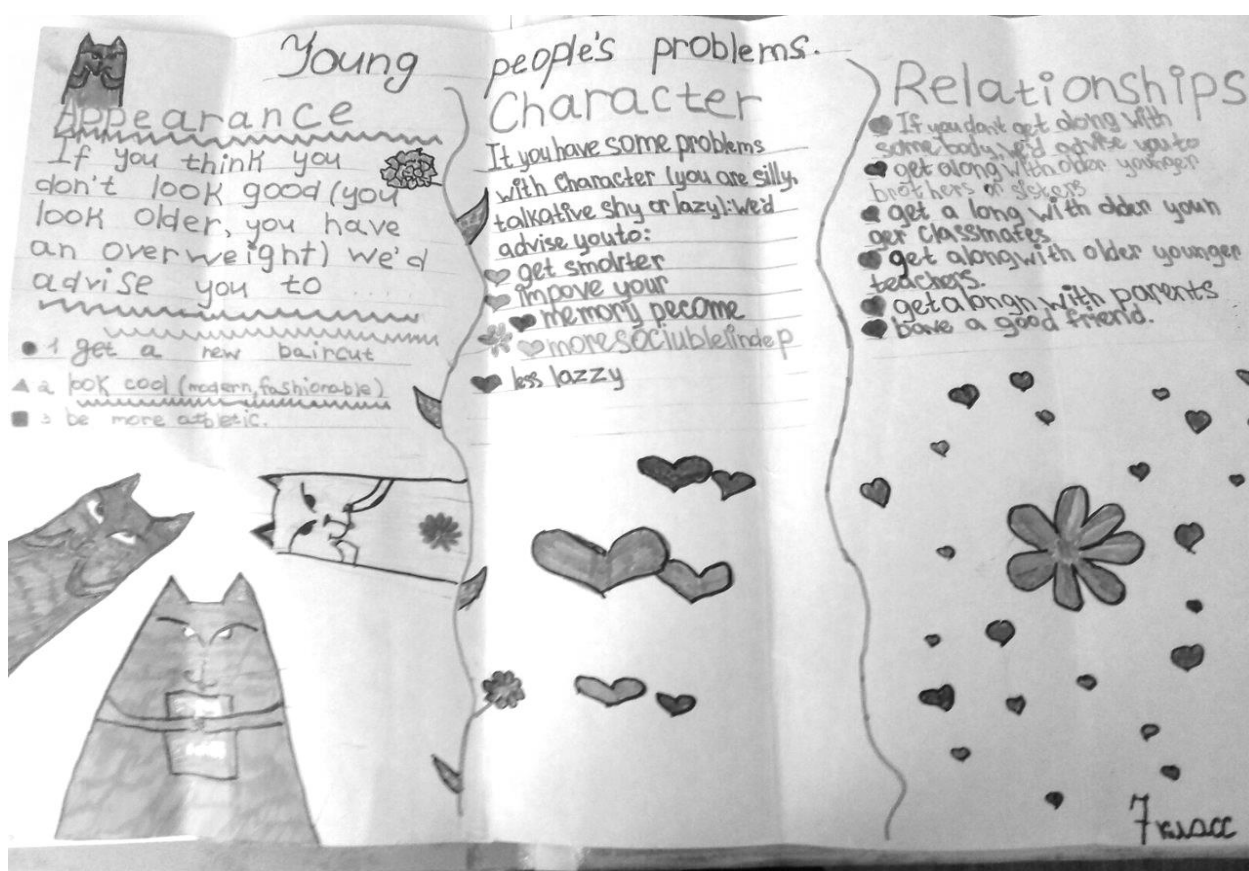 Young people's problems.
Appearance
If you think you
don't look good (you
look older, you have
an overweight) we'd
advise you to ....
1 get a new baircut
2 look cool (modern, fashionable)
3 be more atbletic.
Character
If you have some problems
with Character (you are silly,
talkative shy or lazy): we'd
advise you to:
get smarter
impove your
memory pecome
more sociuble indep
less lazzy
Relationships
If you don't get along with
some body, we'd advise you to
get along with older younger
brothers or sisters
get a long with older youn
ger classmates
get along with older younger
teachers.
get alongn with parents
bave a good friend.
7 класс